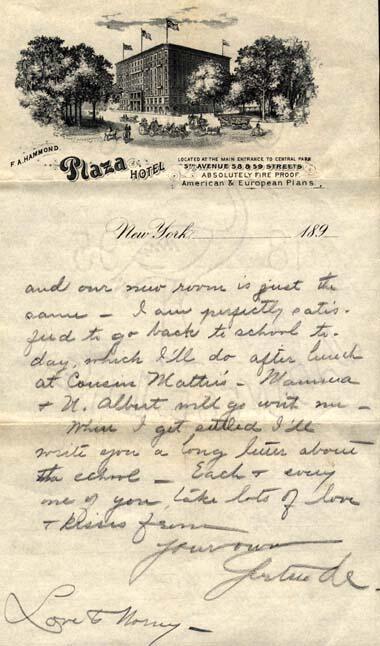 F. A. HAMMOND.
Plaza HOTEL
LOCATED AT THE MAIN ENTRANCE TO CENTRAL PARK
5TH AVENUE 58 & 59 STREETS
ABSOLUTELY FIRE PROOF.
American & European Plans.
New York 189
and our new room is just the
same – I am perfectly satis-
fied to go back to school to-
day, which I'll do after lunch
at Cousin Mattie's – Mamma
& U. Albert will go with me –
When I get settled I'll
write you a long letter about
the school – Each & every
one of you take lots of love
& kisses from
your own
Gertrude
Love to